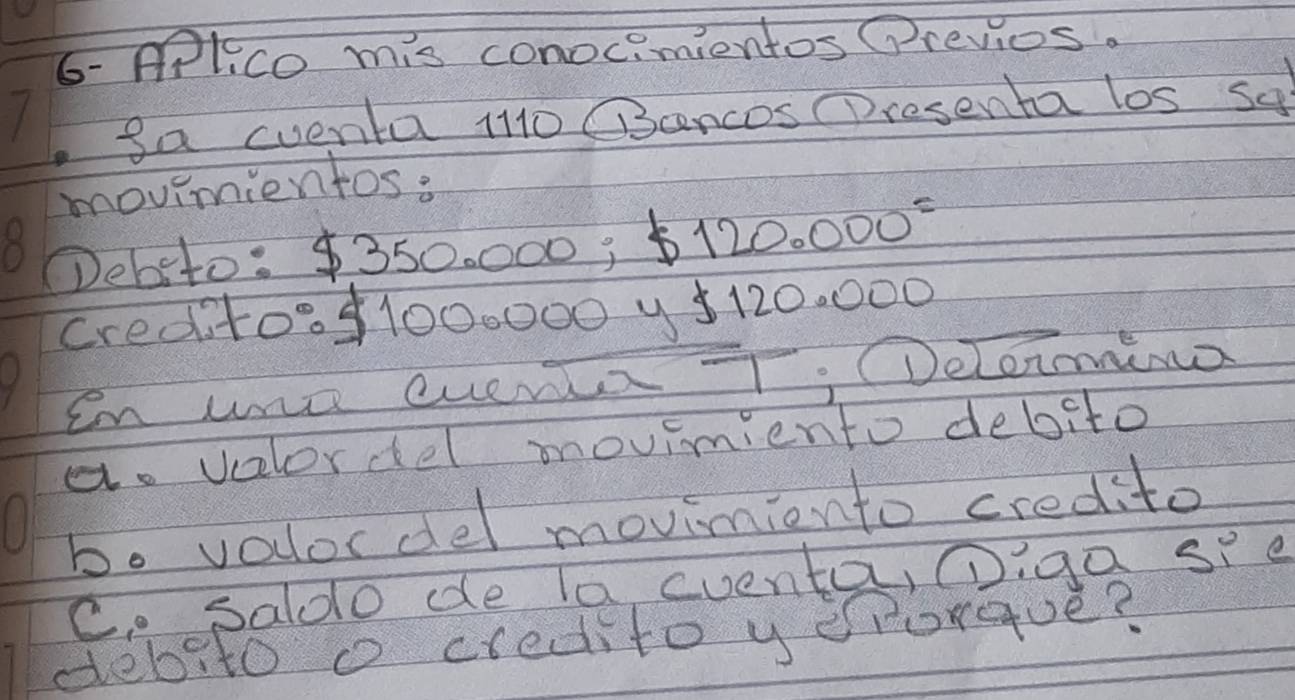 6- Aplico mis conocimientos Previos.
. La cuenta 1110 Bancos Presenta los
movimientos:
Debito: $350.000; $120.000=
credito: $100.000 y $120.000
En una cuenta T; Determina
a. valor del movimiento debito
b. valor del movimiento credito
C. Saldo de la cuenta, Diga si e
debito o credito y ¿Porqué?